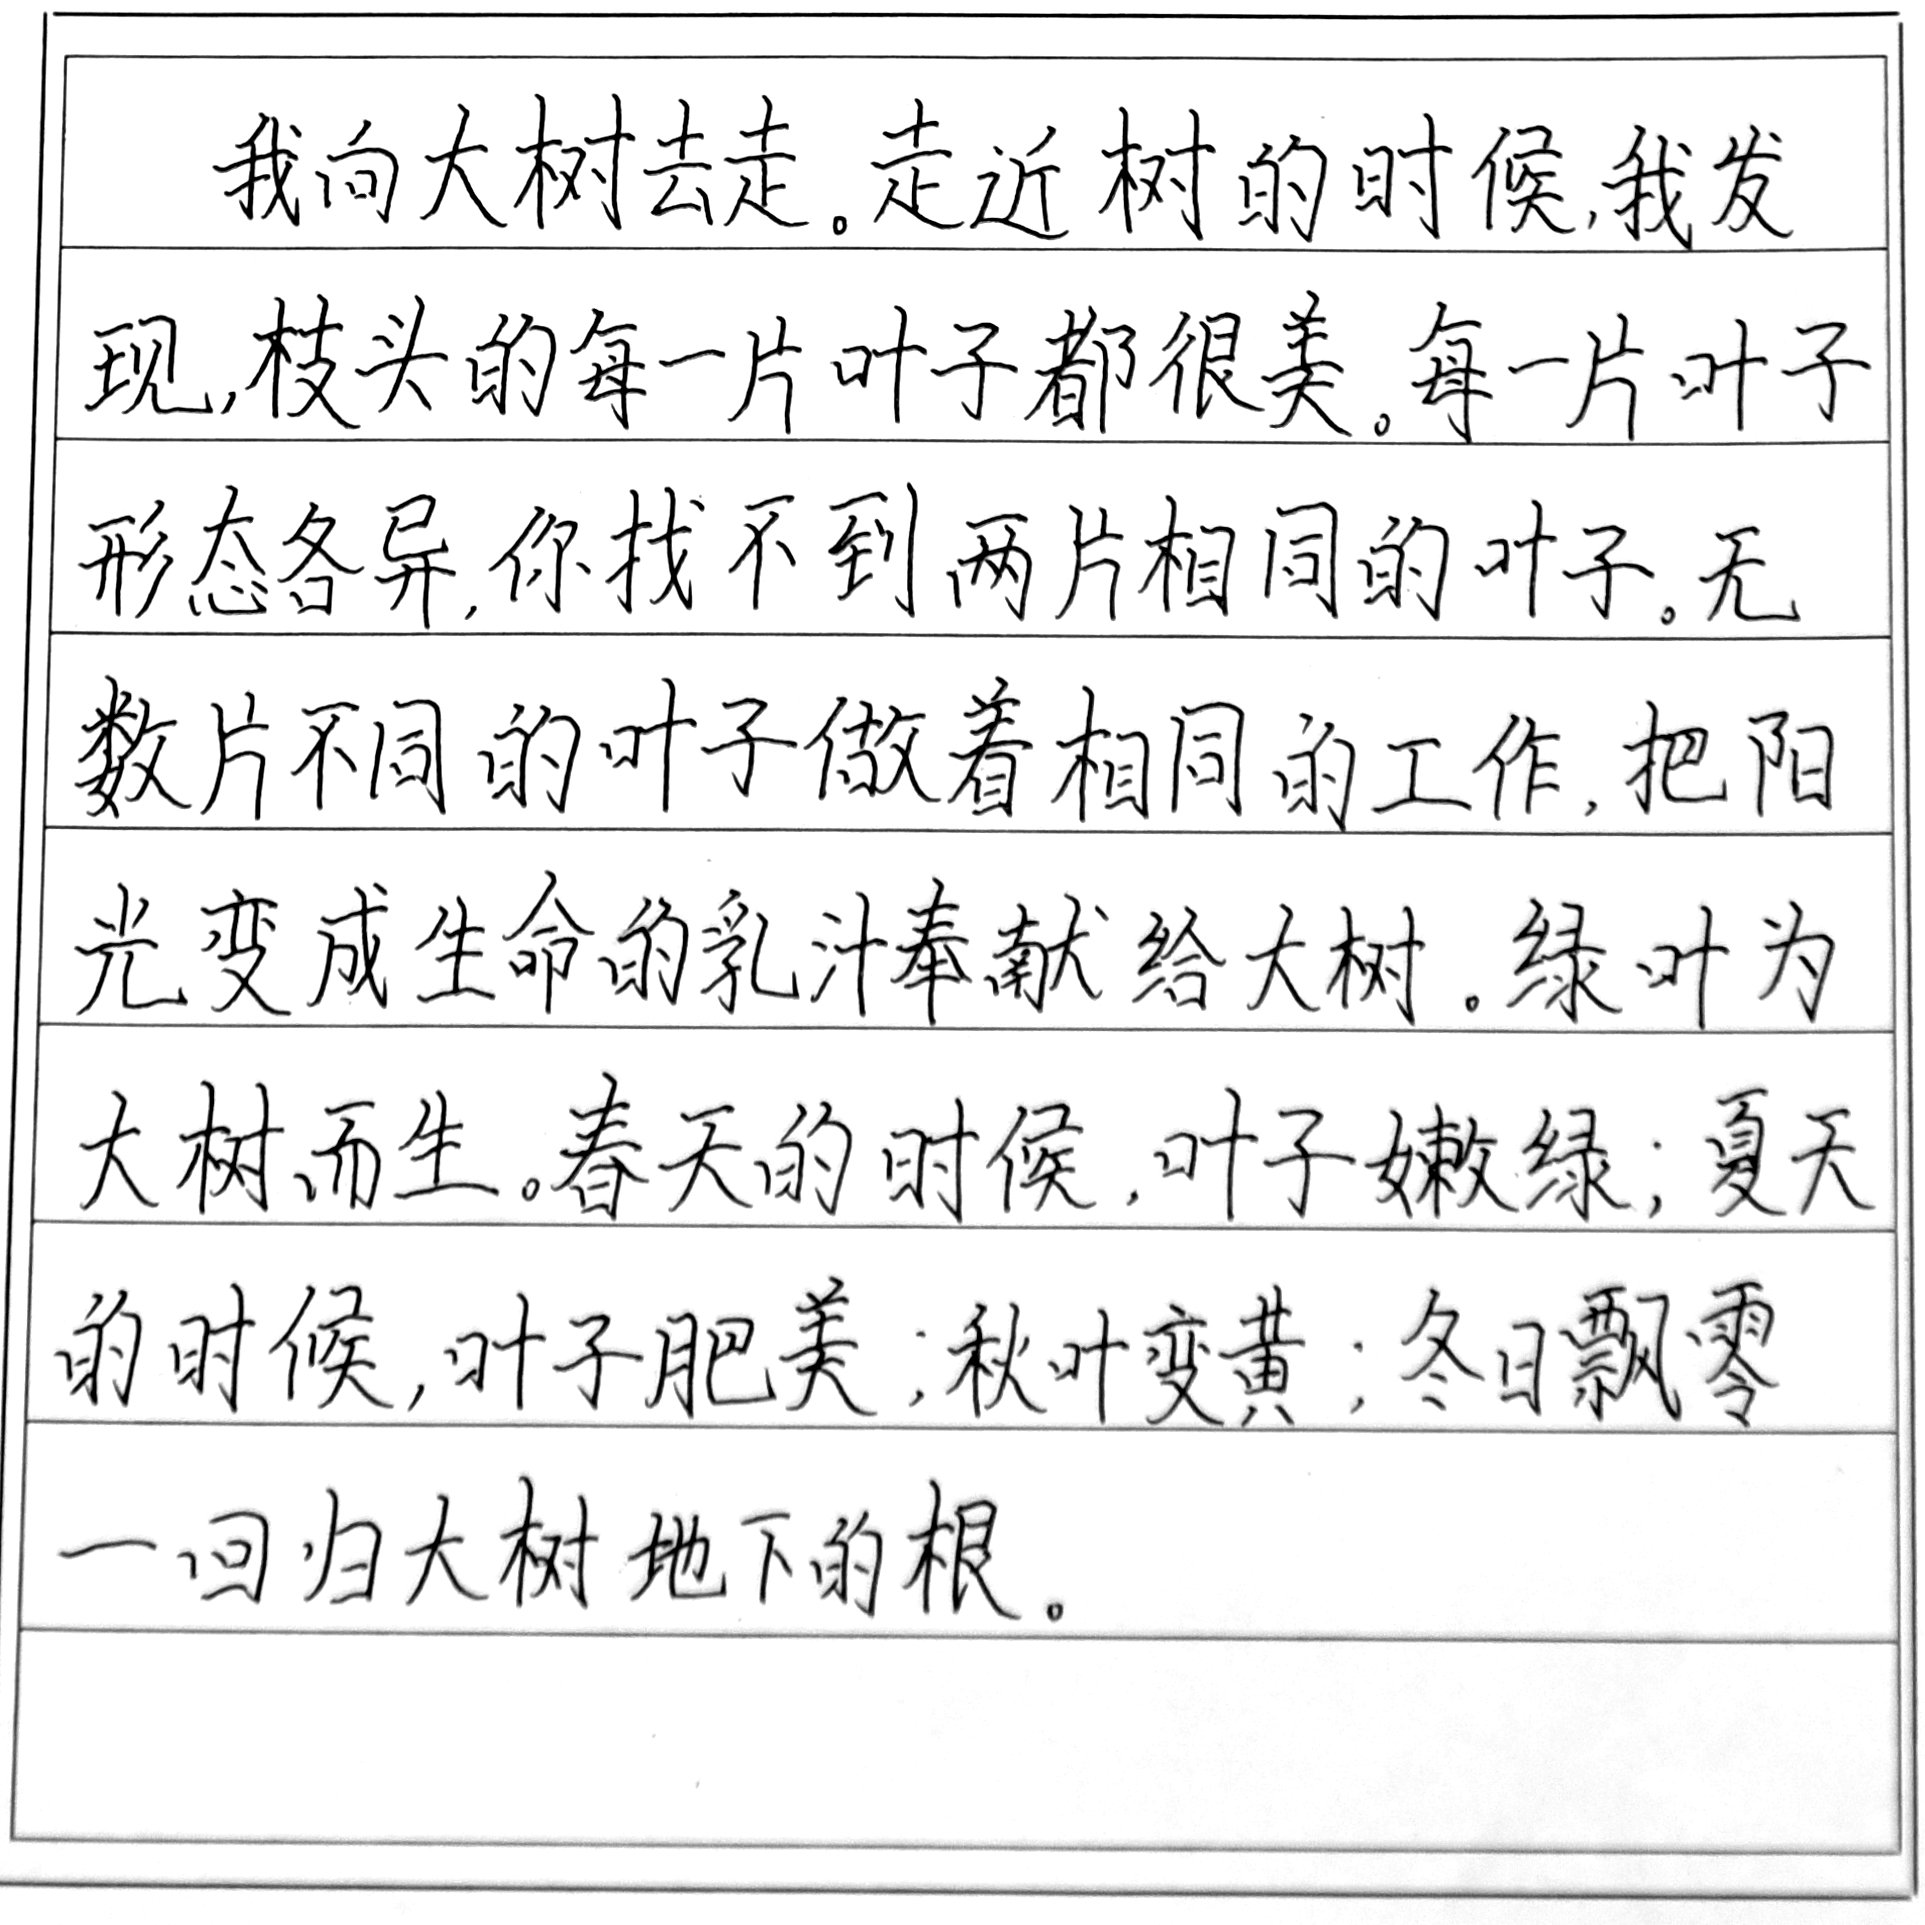 我向大树去走。走近树的时候,我发
现,枝头的每一片叶子都很美。每一片叶子
形态各异,你找不到两片相同的叶子。无
数片不同的叶子做着相同的工作,把阳
光变成生命的乳汁奉献给大树。绿叶为
大树而生。春天的时候,叶子嫩绿;夏天
的时候,叶子肥美;秋叶变黄;冬日飘零
一回归大树地下的根。